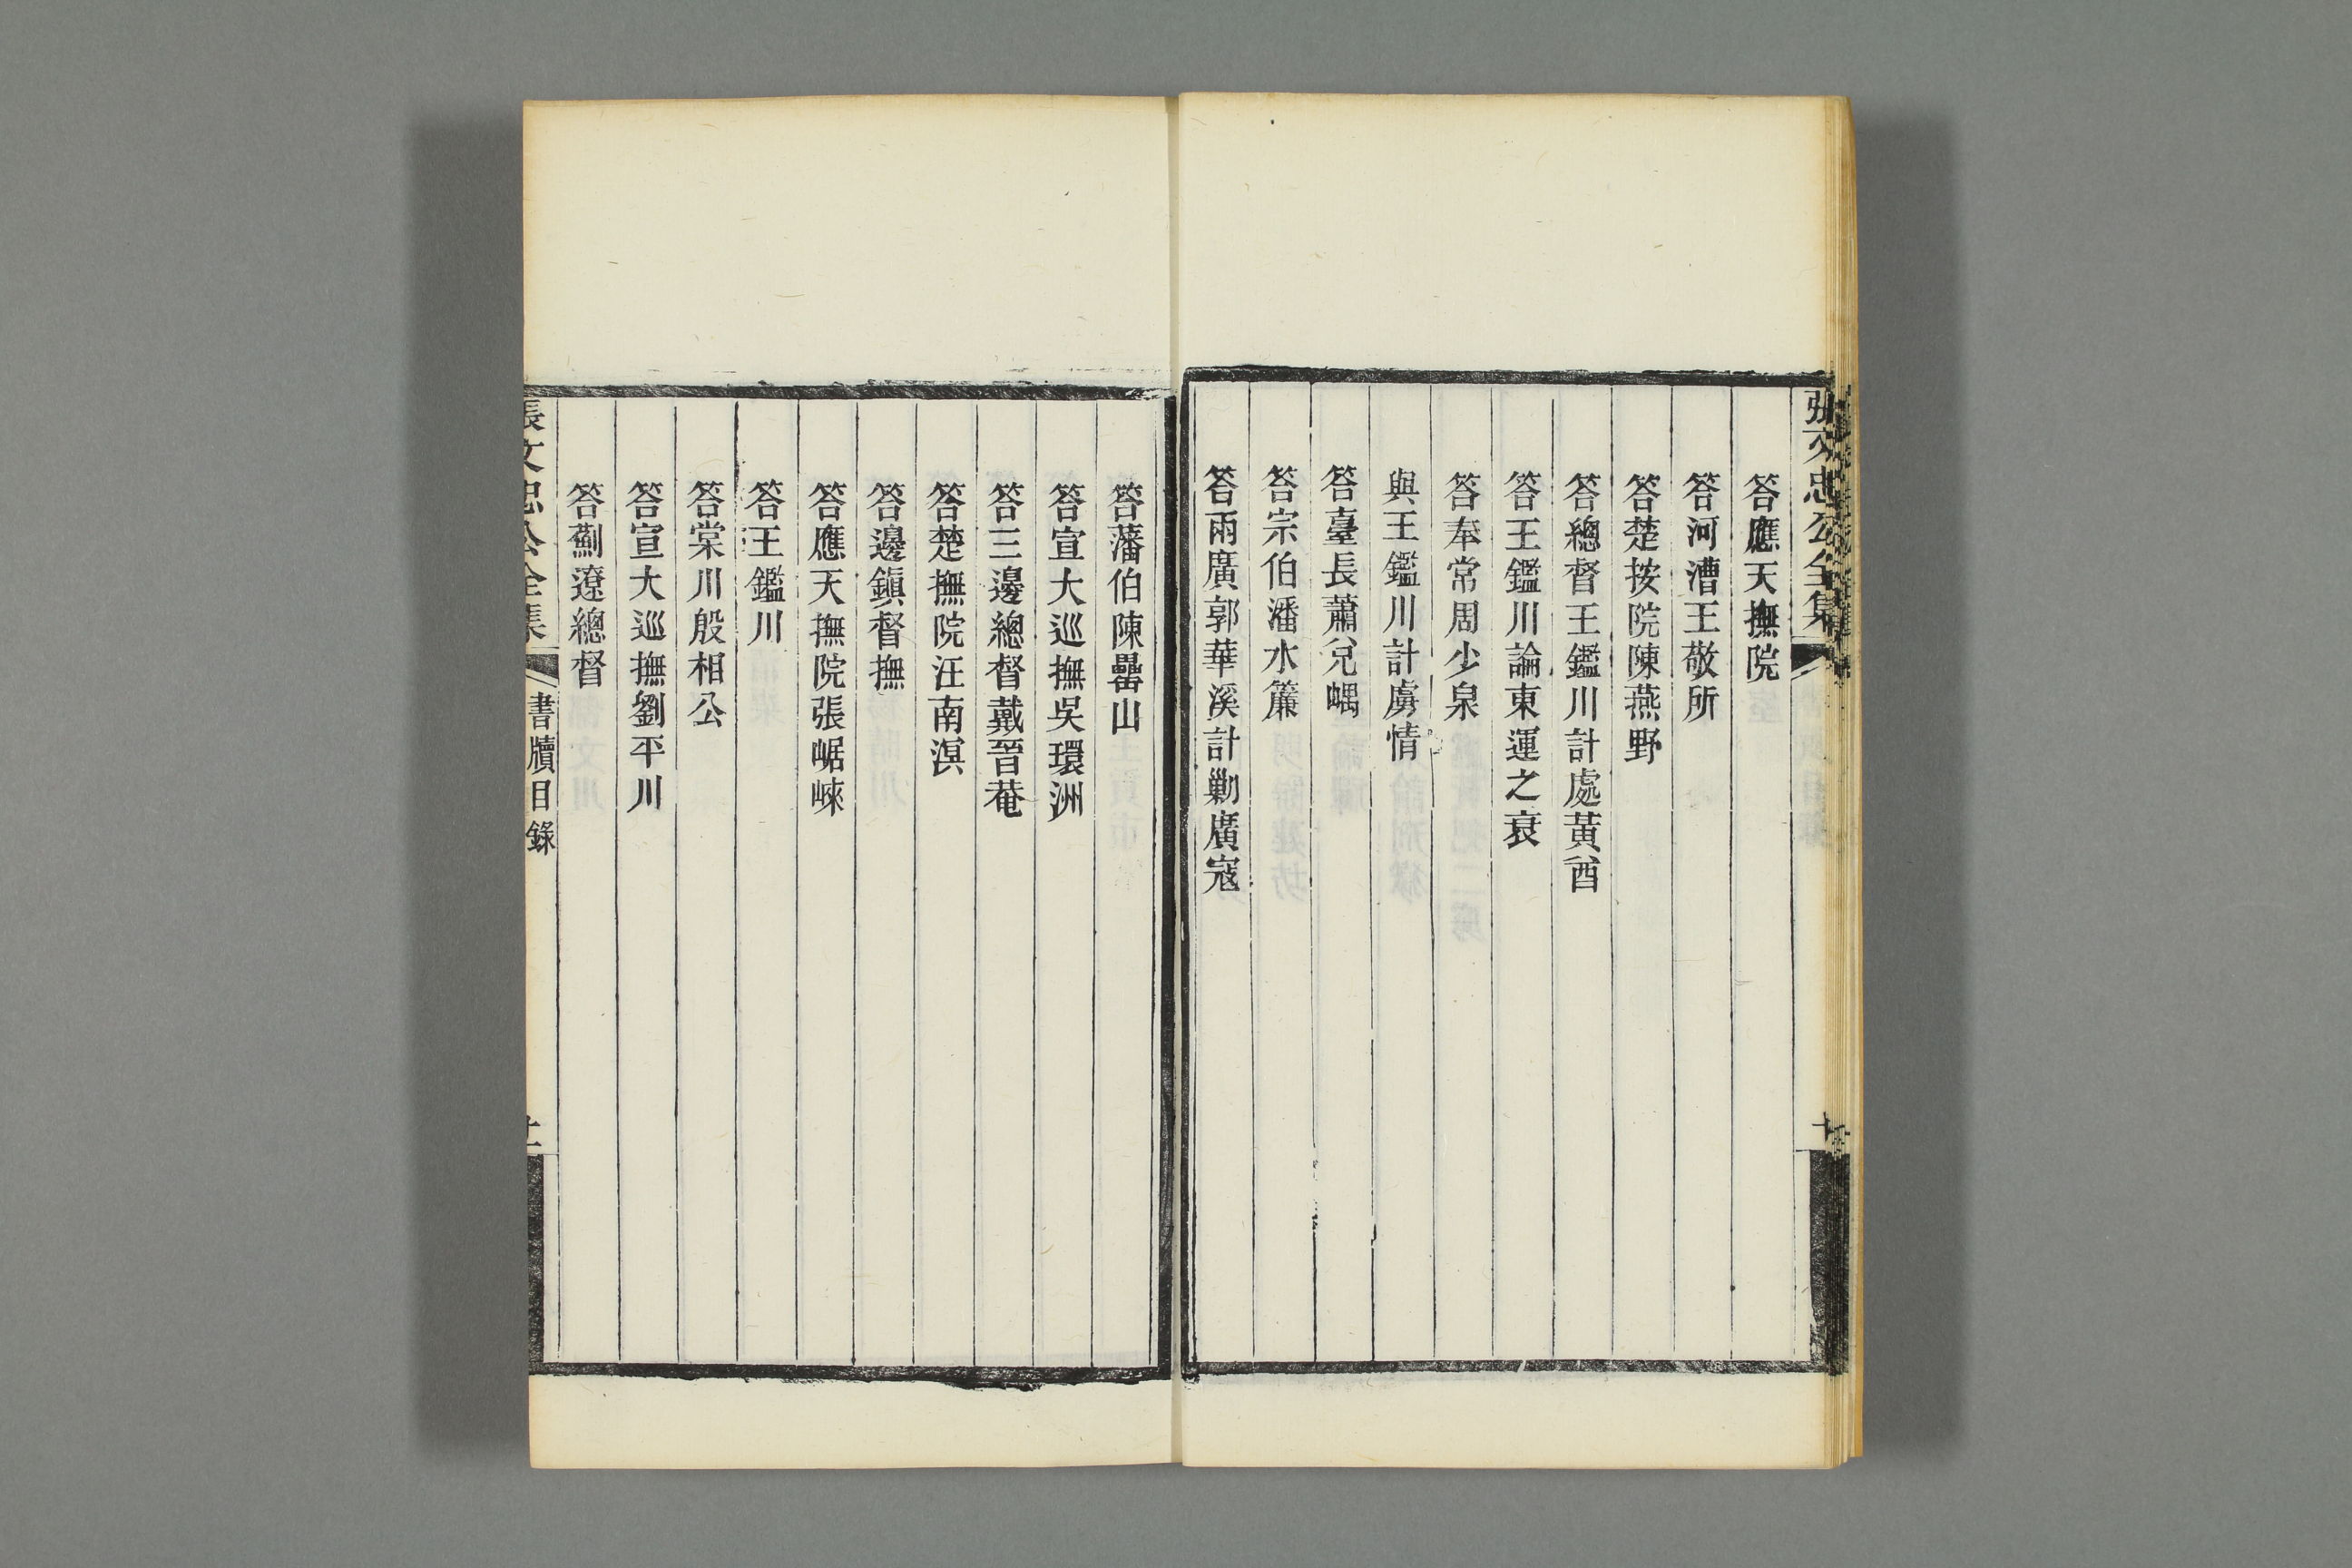 張文忠公全集
答應天撫院
答河漕王敬所
答楚按院陳燕野
答總督王鑑川計處黃酋
答王鑑川論東運之衰
答奉常周少泉
與王鑑川計虜情
答臺長蕭兌嵎
答宗伯潘水簾
答兩廣郭華溪計勦廣寇
答藩伯陳罍山
答宣大巡撫吳環洲
答三邊總督戴晉菴
答楚撫院汪南溟
答邊鎮督撫
答應天撫院張崌崍
答王鑑川
答棠川殷相公
答宣大巡撫劉平川
答薊遼總督
張文忠公全集 書牘目錄